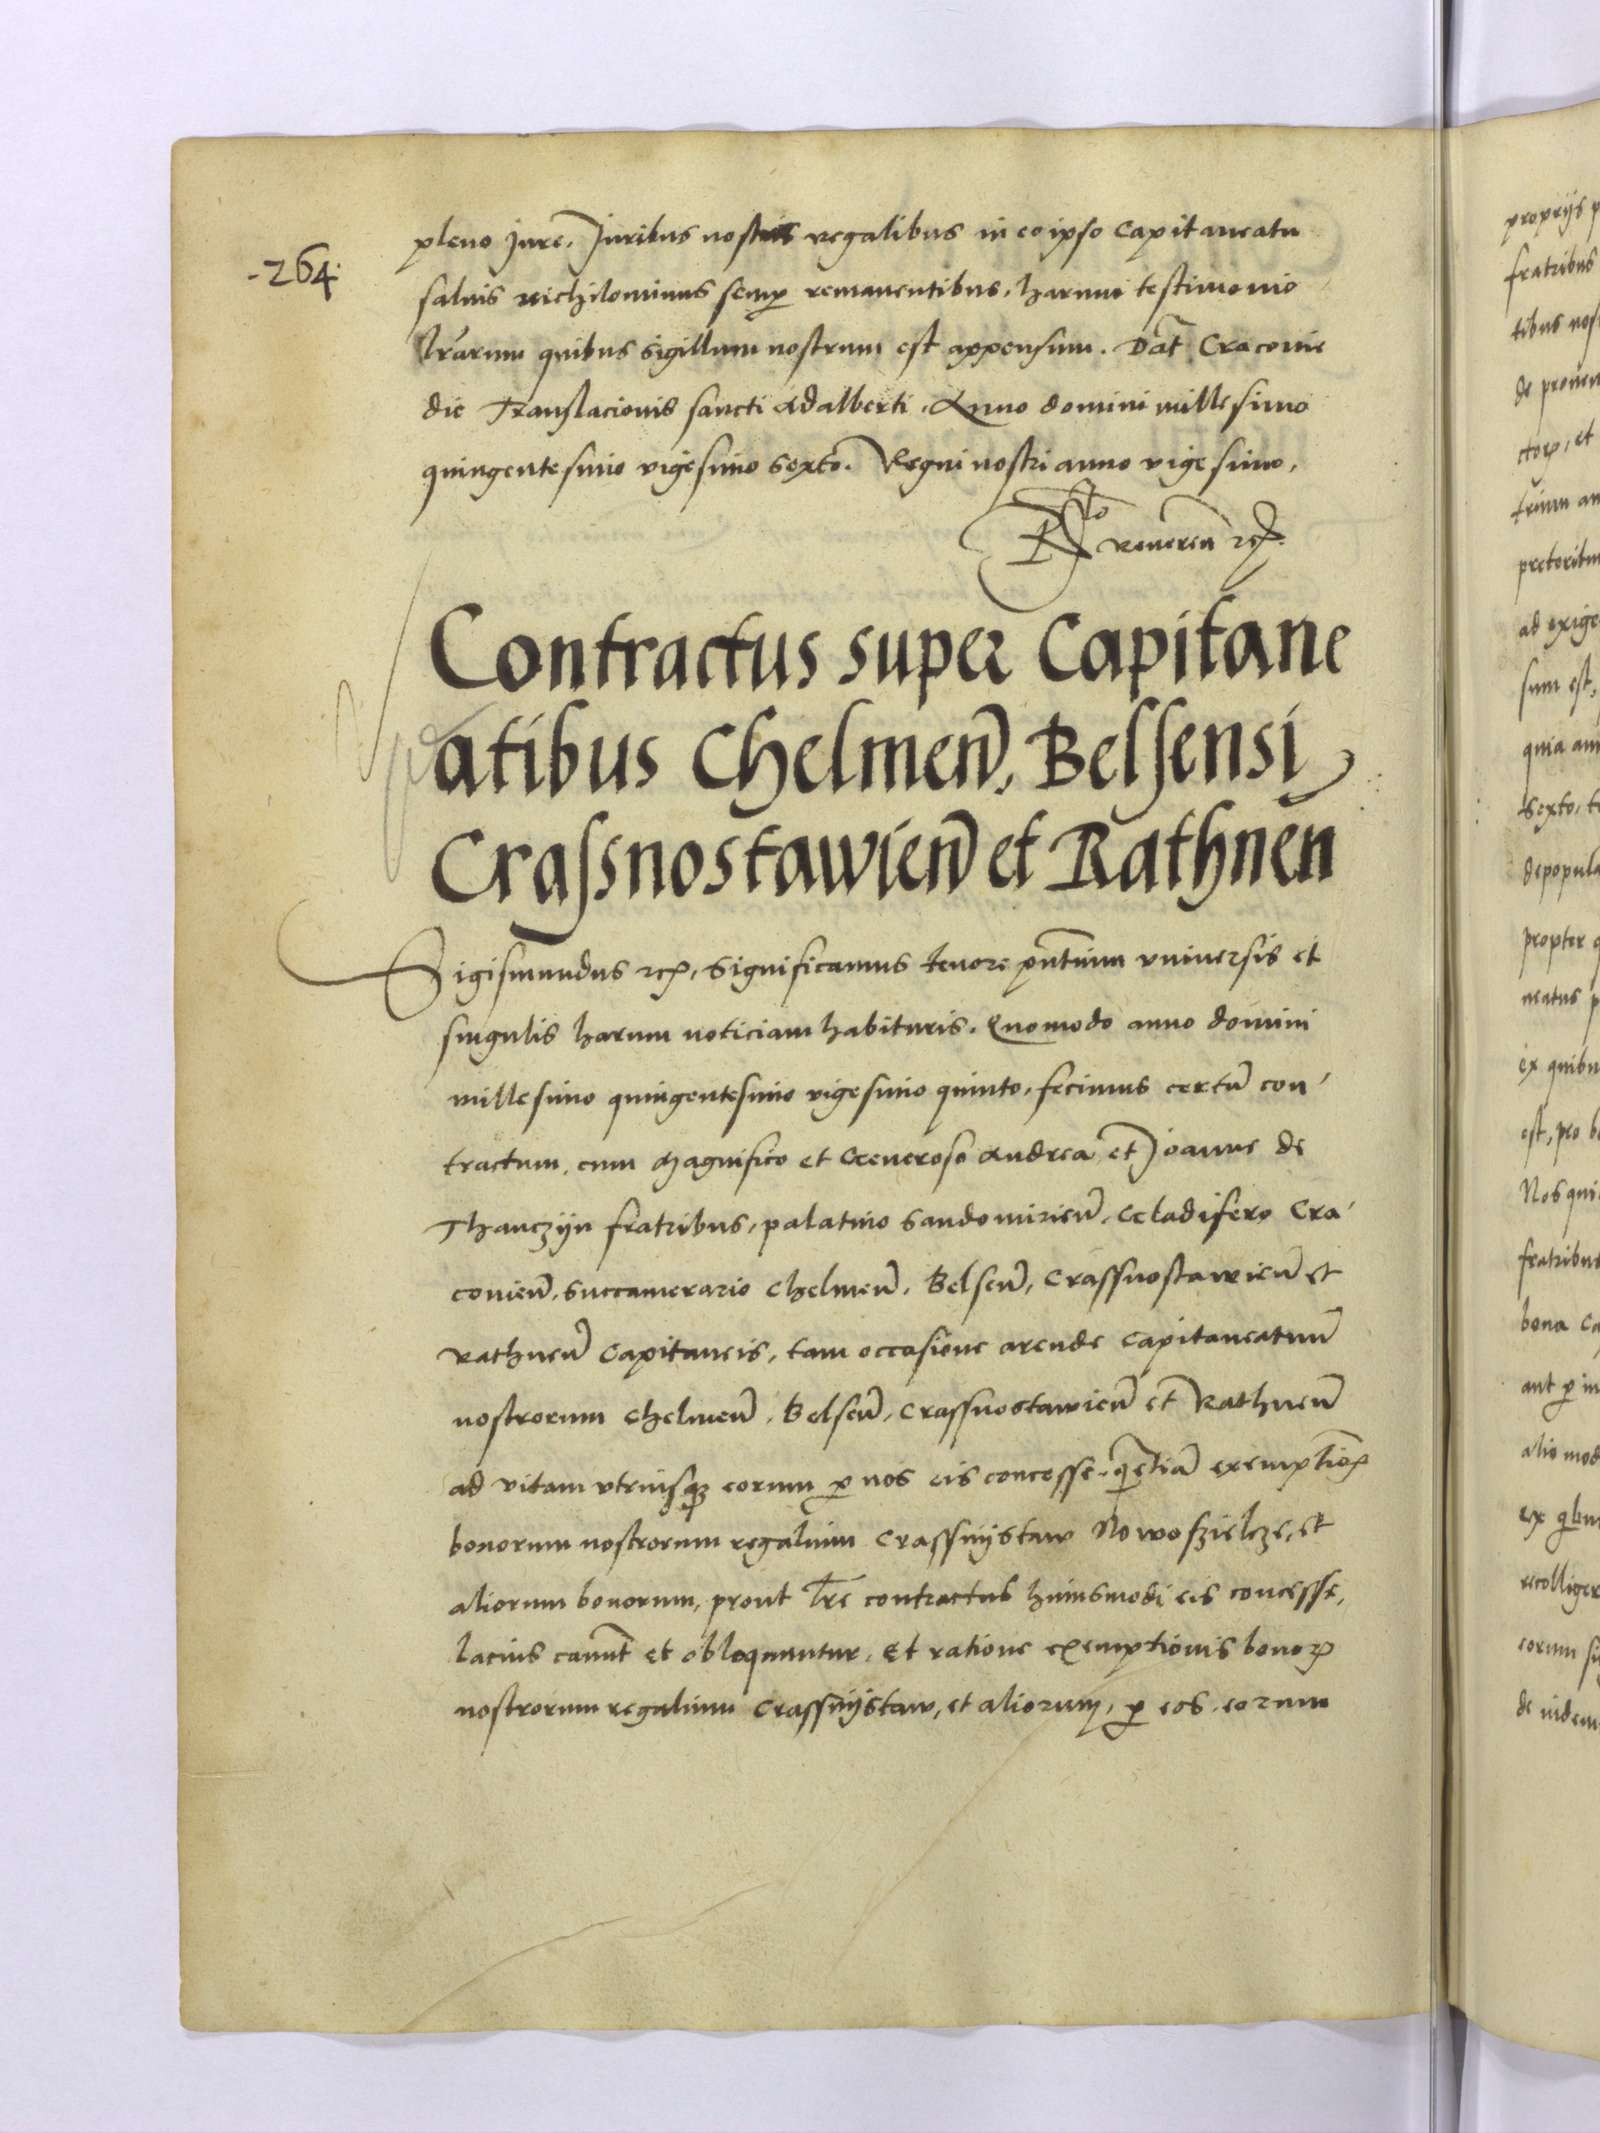 -264.
pleno Jure. Juribus nostris regalibus in eo ipso Capitaneatu
saluis nichilominus semp remanentibus. harum testimonio
lrarum quibus sigillum nostrum est appensum. Dat Cracouie
die Translacionis sancti Adalberti. Anno domini millesimo
quingentesimo vigesimo sexto. Regni nostri anno vigesimo.
Rto Reueren
Contractus super Capitane
atibus Chelmen, Belsensi
Crassnostawien et Rathnen
Sigismundus rex, significamus tenore pntium vniuersis et
singulis harum noticiam habituris. Quomodo anno domini
millesimo quingentesimo vigesimo quinto, fecimus certu con
tractum, cum Magnifico et Generoso Andrea et Joanne de
Thanczijn fratribus, palatino Sandomirien, Ecladifero Cra
couien, Succamerario Chelmen, Belsen, Crassnostawien et
Rathnen Capitaneis, tam occasione arende Capitaneatuum
nostrorum Chelmen, Belsen, Crassnostawien et Rathnen
ad vitam vtriusq eorum p nos eis concesse, q etia exemptio
bonorum nostrorum regalium Crassnijstaw Nowoszielcze, et
aliorum bonorum, prout lre contractus huiusmodi eis concesse,
lacius canunt et obloquuntur, Et ratione exemptionis bonor
nostrorum regalium Crassnijstaw, et aliorum, p eos eorum
propriis
fratribus
tibus
de
et
ad
sum est,
quia
sexto,
propter
ex
est, pro
Nos
fratribus
bona
aut p
ex
eorum
de